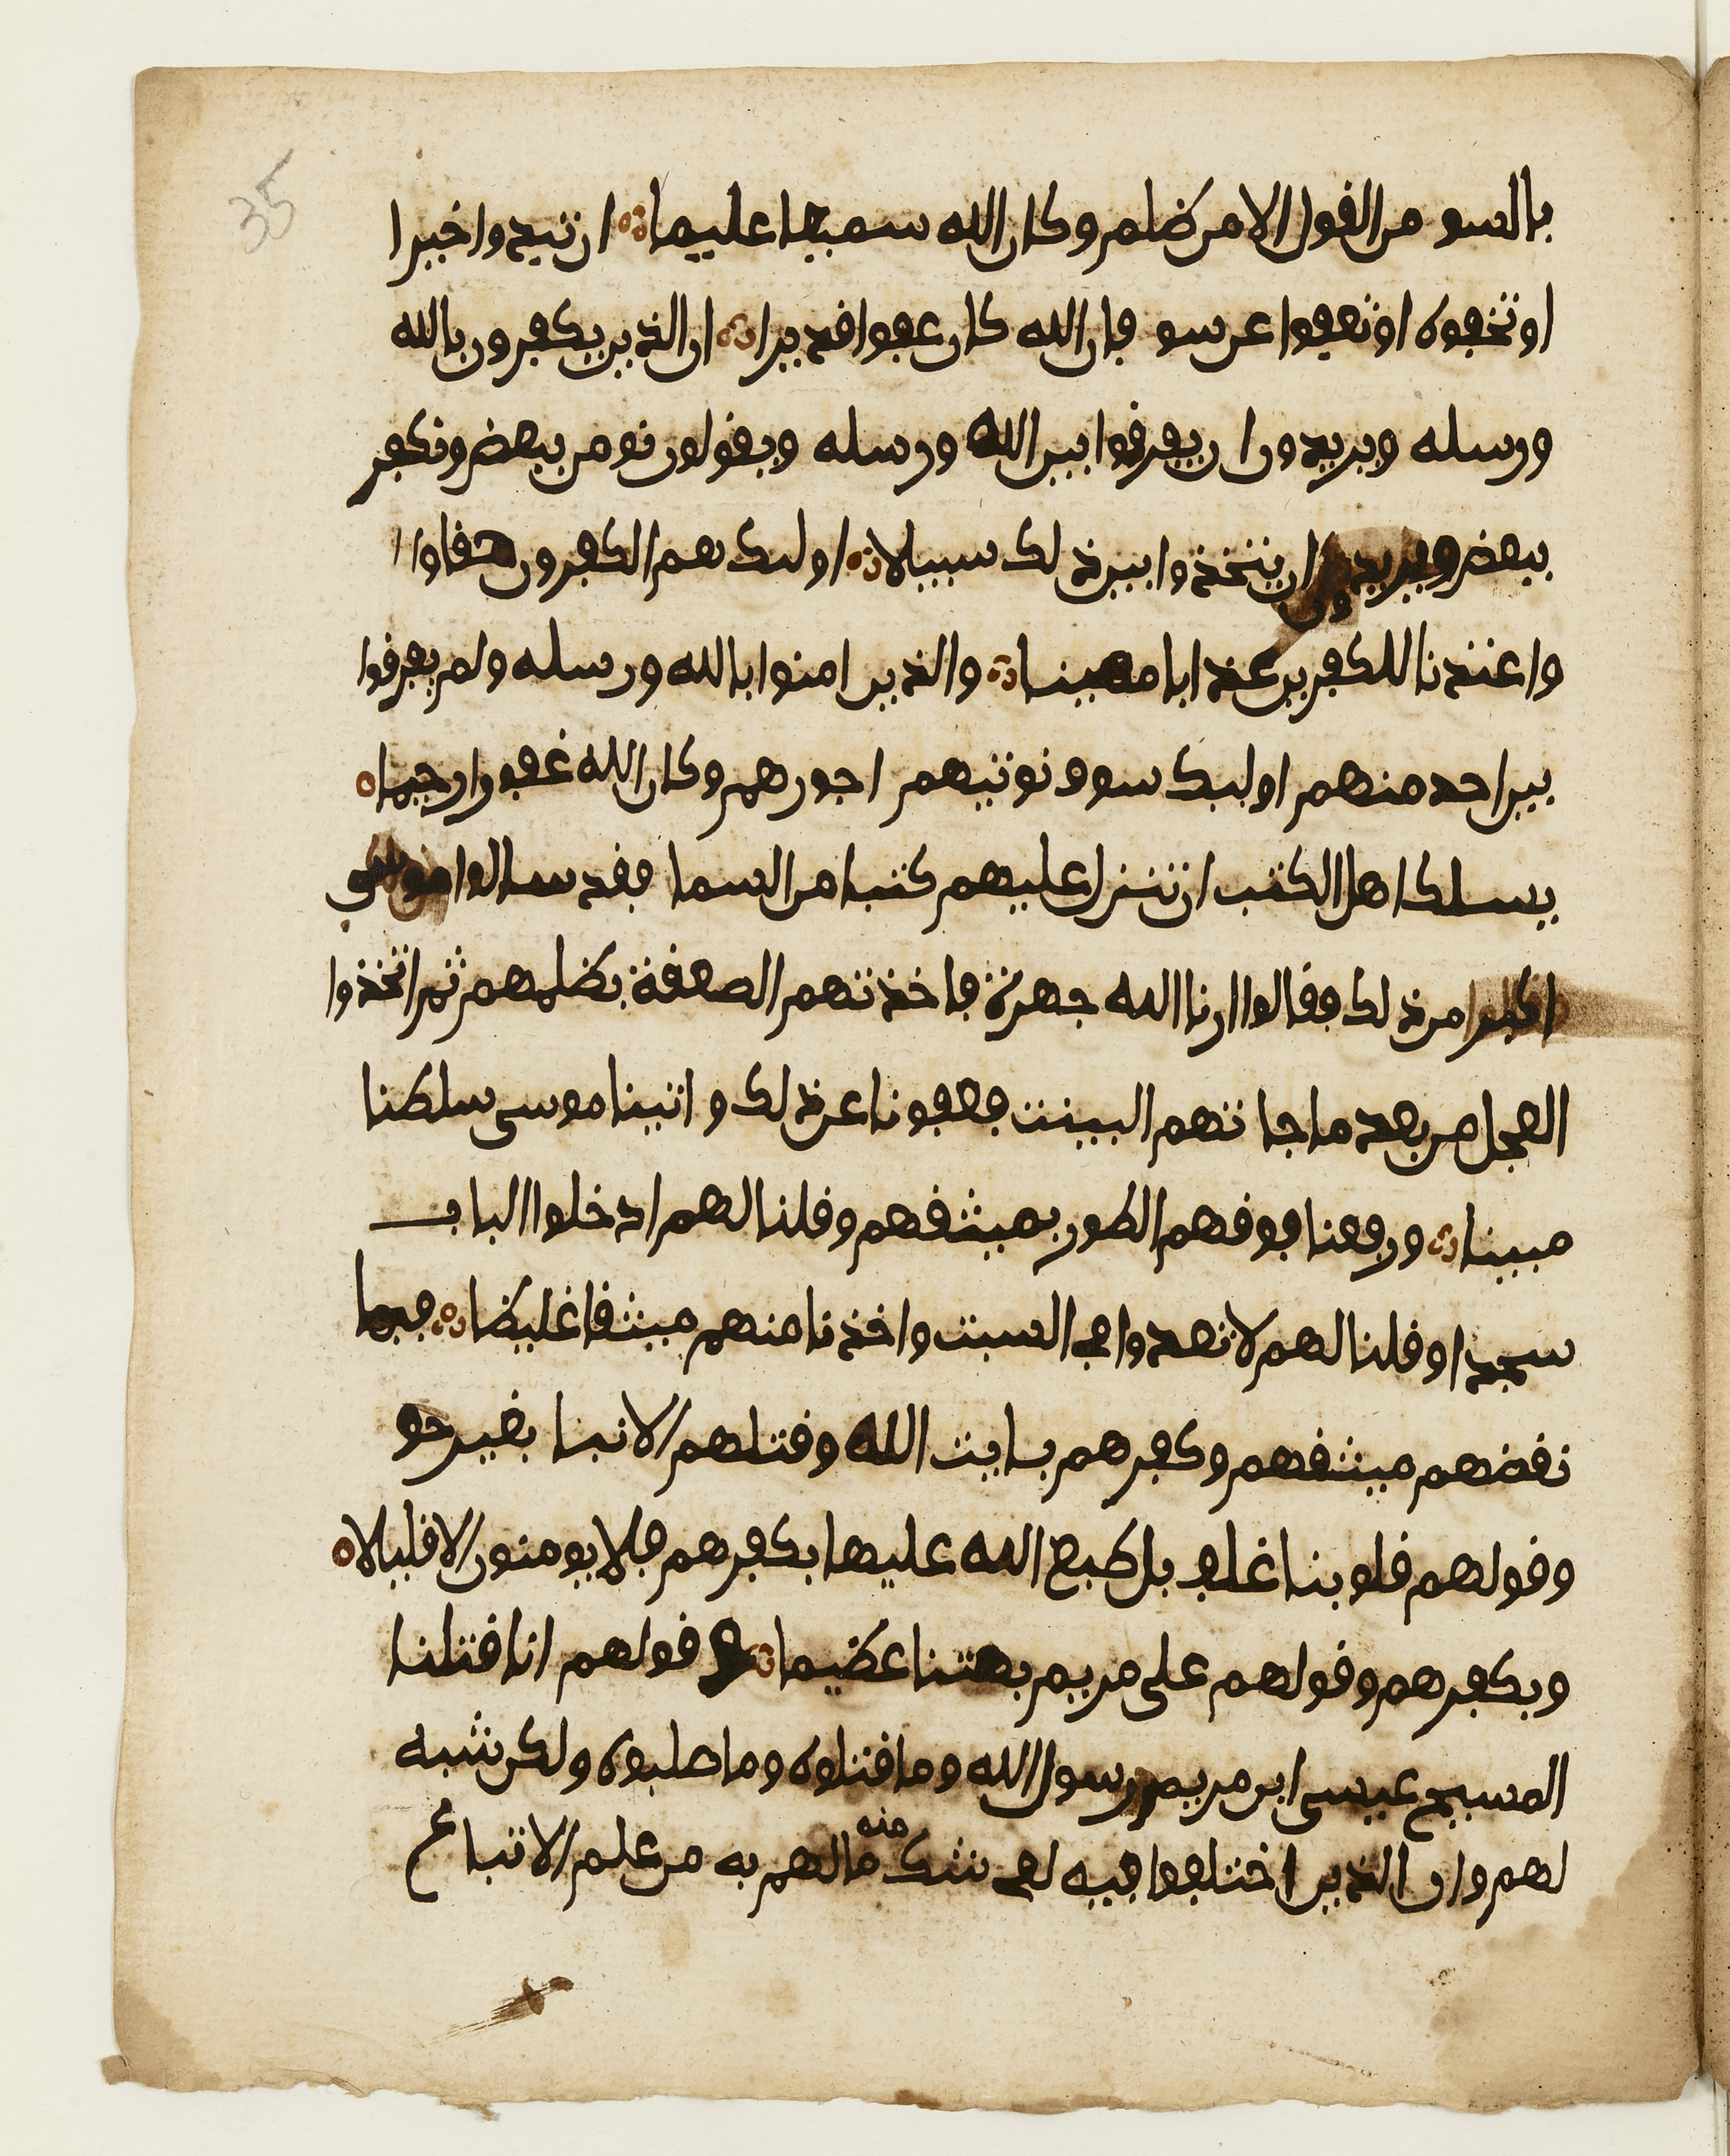 35
بالسو من القول الا من ظلم وكان الله سميعا عليما ان تبدوا خيرا
او تخفوه او تعفوا عن سو فان الله كان عفوا قديرا ان الذين يكفرون بالله
ورسله ويريدون ان يفرقوا بين الله ورسله ويقولون نومن ببعض ونكفر
ببعض ويريدون ان يتخذوا بين ذلك سبيلا اوليك هم الكفرون حقا وا
واعتدنا للكفرين عذابا مهينا والذين امنوا بالله ورسله ولم يفرقوا
بين احد منهم اوليك سوف نوتيهم اجورهم وكان الله غفورا رحيما
يسلك اهل الكتب ان تنزل عليهم كتبا من السما فقد سالوا موسى
اكبر من ذلك فقالوا ارنا الله جهرة فاخذتهم الصعقة بظلمهم ثم اتخذوا
العجل من بعد ما جاتهم البينت فعفونا عن ذلك واتينا موسى سلطنا
مبينا ورفعنا فوقهم الطور بميثقهم وقلنا لهم ادخلوا الباب
سجدا وقلنا لهم لا تعدوا في السبت واخذنا منهم ميثقا غليظا فبما
نقضهم ميثقهم وكفرهم بايت الله وقتلهم الانبيا بغير حق
وقولهم قلوبنا غلف بل طبع الله عليها بكفرهم فلا يومنون الا قليلا
وبكفرهم وقولهم على مريم بهتنا عظيما وقولهم انا قتلنا
المسيح عيسى ابن مريم رسول الله وما قتلوه وما صلبوه ولكن شبه
لهم وان الذين اختلفوا فيه لفي شك منه ما لهم به من علم الا اتباع